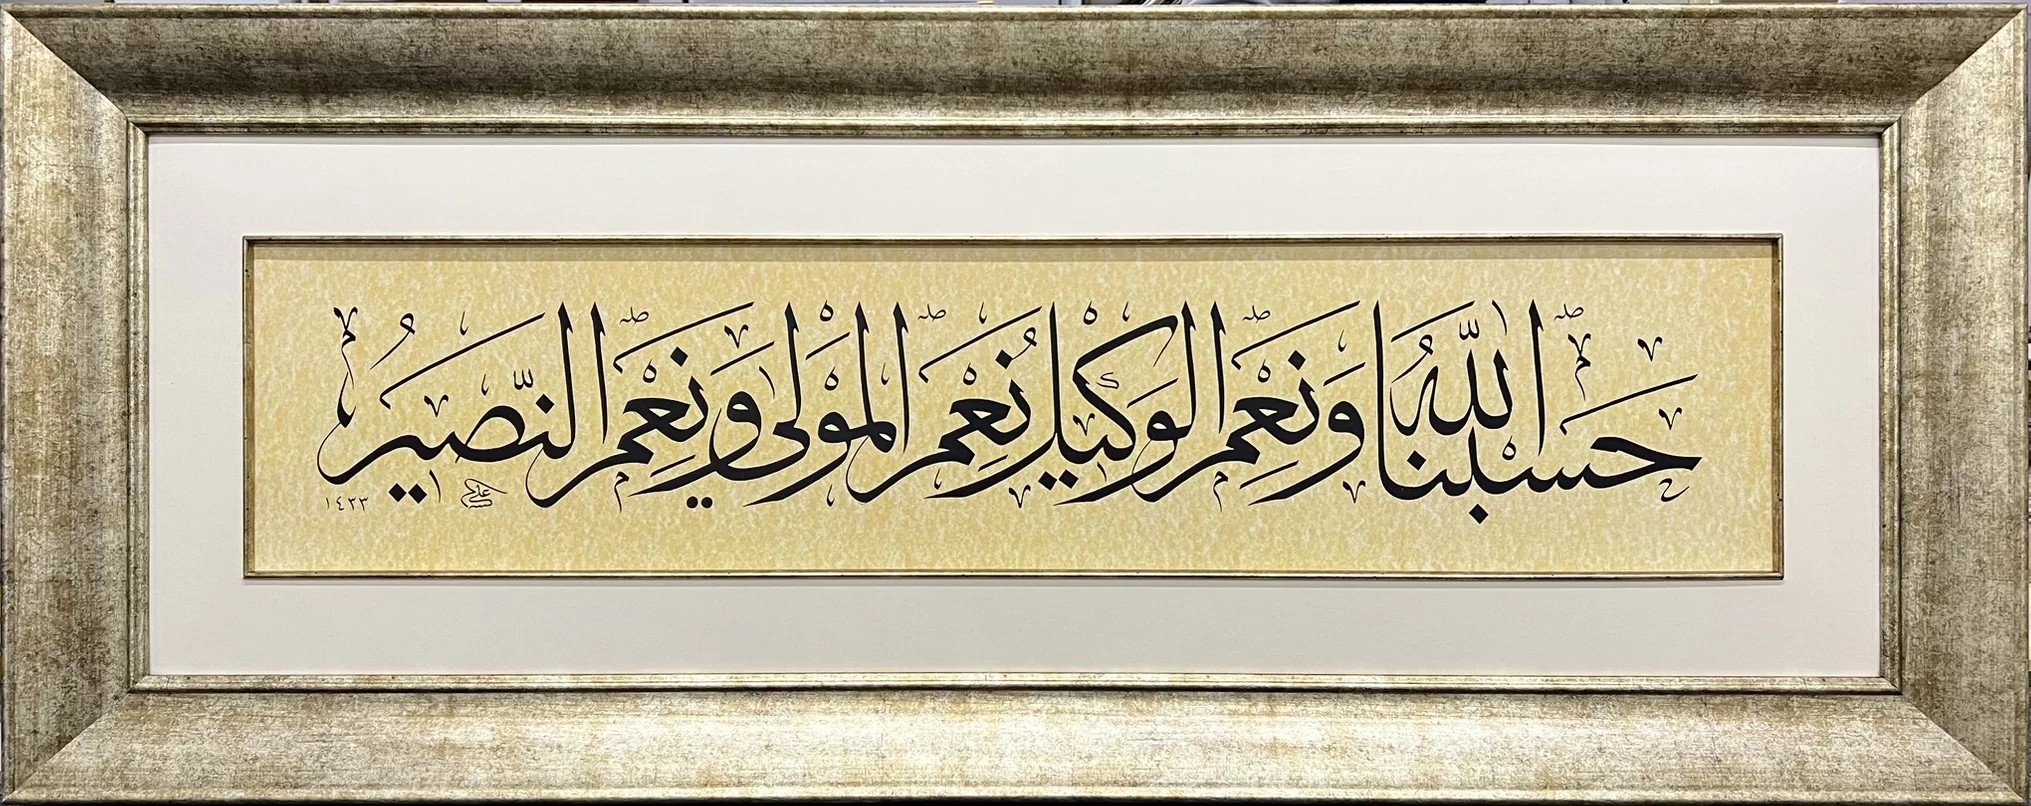 حَسْبُنَا اللّٰهُ وَنِعْمَ الْوَكِيلُ نِعْمَ الْمَوْلٰى وَنِعْمَ النَّصِيرُ
علي
١٤٣٣